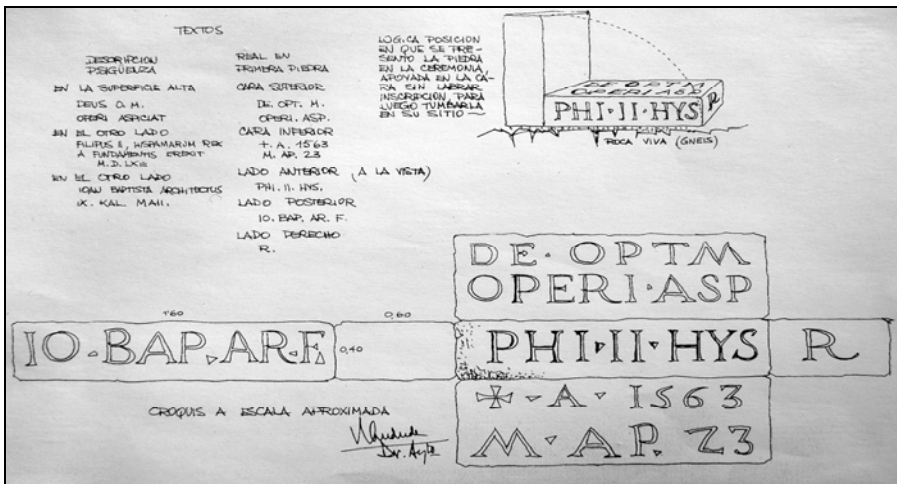 TEXTOS
DESCRIPCION
PSIGUENZA
EN LA SUPERFICIE ALTA
DEUS O. M.
OPERI ASPICIAT
EN EL OTRO LADO
FILIPUS II, HISPANIARUM REX
A FUNDAMENTIS EREXIT
M.D.LXIII
EN EL OTRO LADO
IOAN BAPTISTA ARCHITECTUS
IX. KAL. MAII.
REAL EN
PRIMERA PIEDRA
CARA SUPERIOR
DE. OPT. M.
OPERI. ASP.
CARA INFERIOR
+. A. 1563
M. AP. 23
LADO ANTERIOR (A LA VISTA)
PHI. II. HYS.
LADO POSTERIOR
IO. BAP. AR. F.
LADO DERECHO
R.
LOGICA POSICION
EN QUE SE PRE-
SENTO LA PIEDRA
EN LA CEREMONIA,
APOYADA EN LA CA-
RA SIN LABRAR
INSCRIPCION, PARA
LUEGO TUMBARLA
EN SU SITIO
DE OPTM
OPERI ASP
PHI·II·HYS
R
ROCA VIVA (GNEIS)
DE·OPTM
OPERI·ASP
1'60
0,60
IO·BAP·AR·F·
0,40
PHI·II·HYS
R
✠·A·1563
M·AP. 23
CROQUIS A ESCALA APROXIMADA